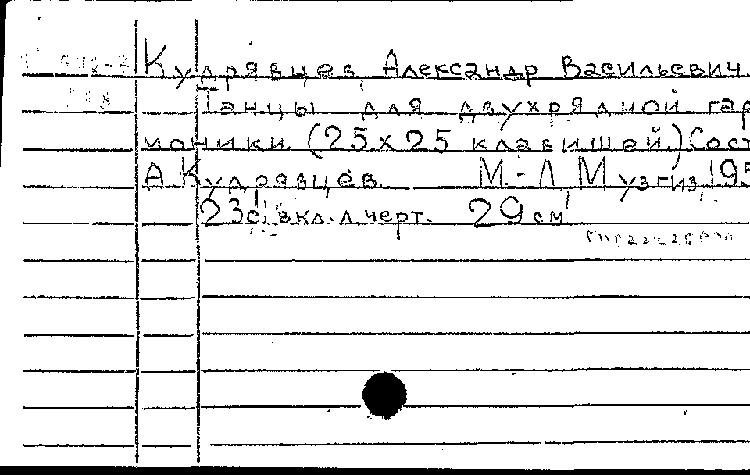 Кудрявцев, Александр Васильевич.
Танцы для двухрядной гар
моники. (25х25 клавишей.) Сост
А. Кудрявцев. М.-Л Музгиз, 195
23с., вкл. л. черт. 29 см